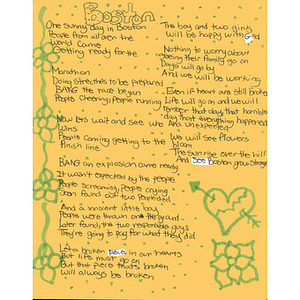 Boston
One sunny day in Boston
People from all over the
World came
Getting ready for the
Marathon
Doing stretches to be prepared
BANG the race begun
People cheering, people running
Now lets wait and see who
wins
People coming getting to the
finish line
BANG an explosion came ready
It wasn't expected by the people
People screaming, people crying
Soon found out two exploded
And a innocent little boy
People were thrown on the ground
Later found, the two responsible guys
They're going to pay for what they did
Let a broken piece in our hearts
But life must go on
But that piece that's broken
will always be broken
The boy and two girls
will be happy with God
Nothing to worry about
Seeing their family go on
Days will go by
And we will be working
Even if heart are still broken
Life will go on and we will
remember that day that horrible
day that everything happened
And unexpected
We will see flowers
bloom
The sun rise over the hill
And see Boston grow Stronger